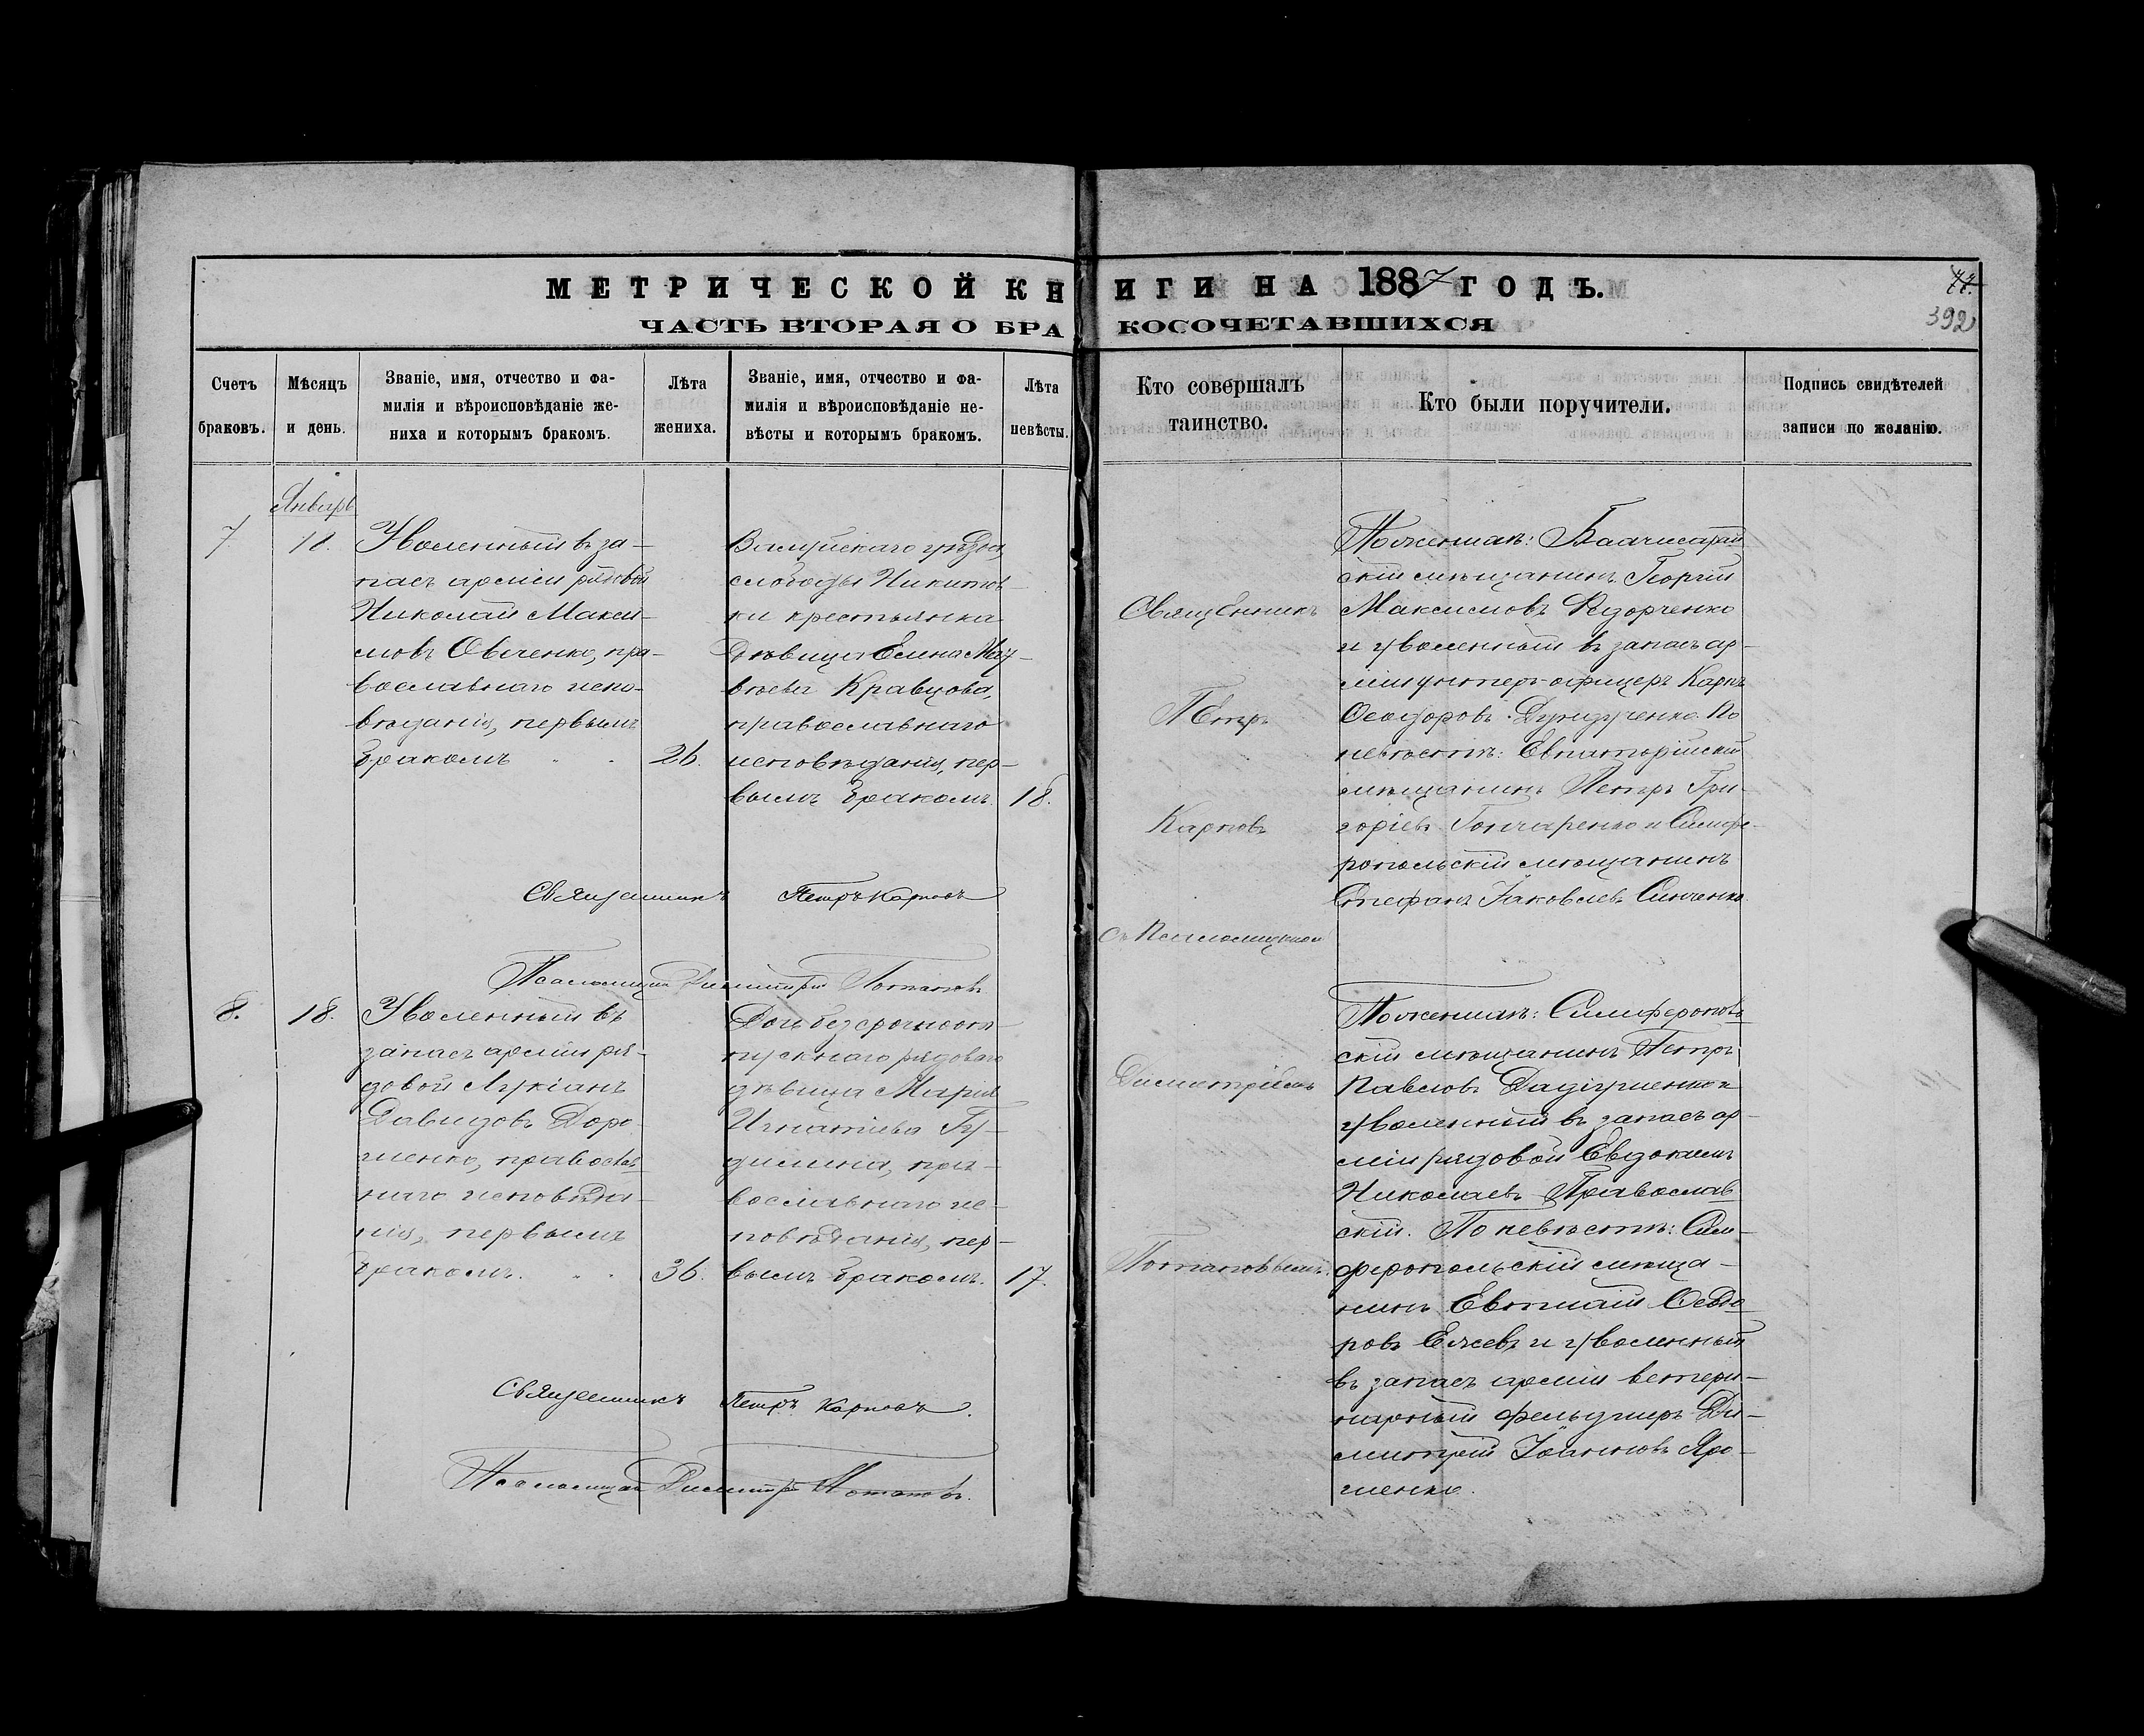 МЕТРИЧЕСКОЙ КНИГИ НА 1887 ГОДЪ.
ЧАСТЬ ВТОРАЯ О БРАКОСОЧЕТАВШИХСЯ
392
Счетъ браковъ.
Мѣсяцъ и день.
Званіе, имя, отчество и фа-
милія и вѣроисповѣданіе же-
ниха и которымъ бракомъ.
Лѣта жениха.
Званіе, имя, отчество и фа-
милія и вѣроисповѣданіе не-
вѣсты и которымъ бракомъ.
Лѣта невѣсты.
Кто совершалъ
таинство.
Кто были поручители.
Подпись свидѣтелей
записи по желанію.
Январь
7
18.
Уволенный въ за-
пасъ арміи рядовой
Николай Макси-
мовъ Овченко, пра-
вославнаго испо-
вѣданія, первымъ
бракомъ
26.
Валуйскаго уѣзда,
слободы Никитов-
ки крестьянка
дѣвица Елена Мат-
вѣева Кравцова,
православнаго
исповѣданія, пер-
вымъ бракомъ.
18.
Священникъ
Петръ
Карповъ
съ Псаломщикомъ
Димитріемъ
Потаповымъ.
По женихѣ: Бахчисарай
скій мѣщанинъ Георгій
Максимовъ
и уволенный въ запасъ ар-
міи унтеръ-офицеръ Карпъ
Ѳеодоровъ По
невѣстѣ: Евпаторійскій
мѣщанинъ Петръ Гри-
горіевъ Гончаренко и Симфе-
ропольскій мѣщанинъ
Стефанъ Іаковлевъ Синченко.
Священникъ Петръ Карповъ
Псаломщикъ Димитрій Потаповъ
8.
18.
Уволенный въ
запасъ арміи ря-
довой Лукіанъ
Давидовъ Доро-
шенко, православ
наго исповѣда-
нія, первымъ
бракомъ.
36.
Дочь безсрочноот-
пускнаго рядоваго
дѣвица Марія
Игнатіева Гу-
димина, пра-
вославнаго ис-
повѣданія, пер-
вымъ бракомъ.
17.
По женихѣ: Симферополь
скій мѣщанинъ Петръ
Павловъ и
уволенный въ запасъ ар-
міи рядовой Евдокимъ
Николаевъ Православ
скій. По невѣстѣ: Сим-
феропольскій мѣща-
нинъ Евтихій Ѳеодо
ровъ Ежевъ и уволенный
въ запасъ арміи ветери-
нарный фельдшеръ Ди-
митрій Іоанновъ Яро-
шенко.
Священникъ Петръ Карповъ.
Псаломщикъ Димитрій Потаповъ.